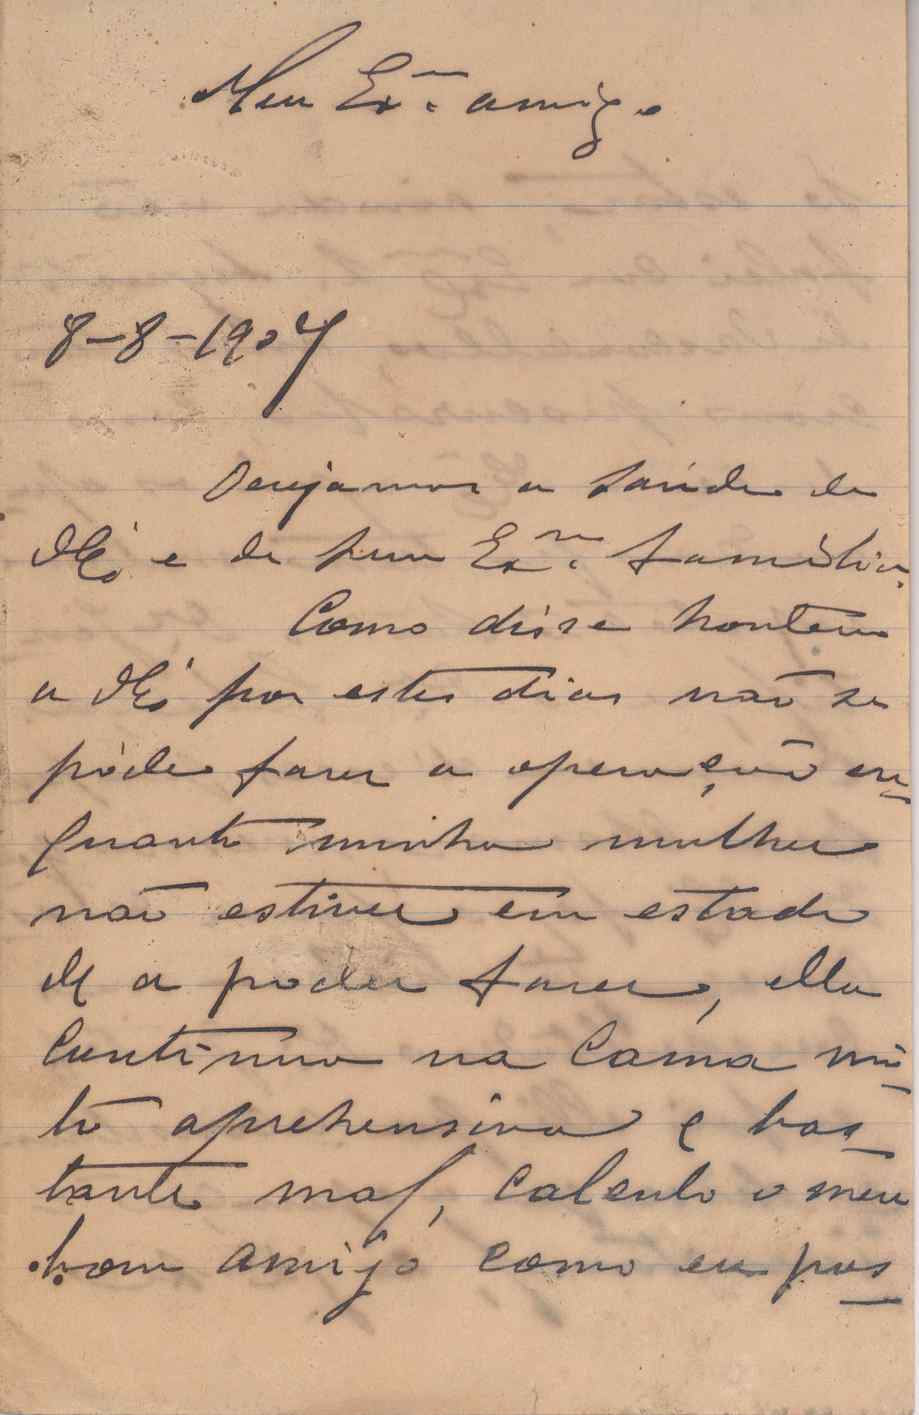 Meu Exº. amigo
8-8-1907
Desejamos a saúde de
VExª e de sua Exmª. familia.
Como disse hontem
a VExª por estes dias não se
póde faser a operação en-
quanto minha mulher
não estiver em estado
de a poder faser, ella
continua na cama mui-
to aprehensiva e bas-
tante mal, calculo o meu
bom amigo como eu pos-